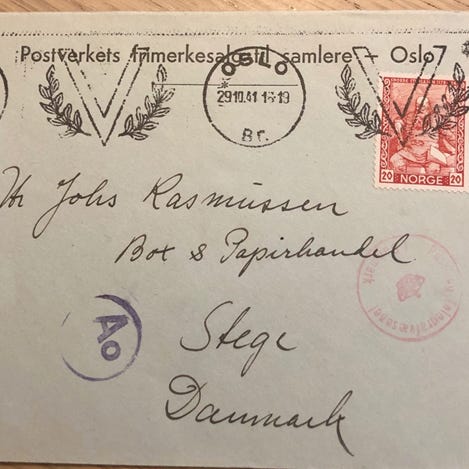 Postverkets frimerkesalg til samlere – Oslo
OSLO
29.10.41 13-19
Br.
NORGE
20 20
Hr Johs Rasmussen
Box & Papirhandel
Stege
Danmark
Ao